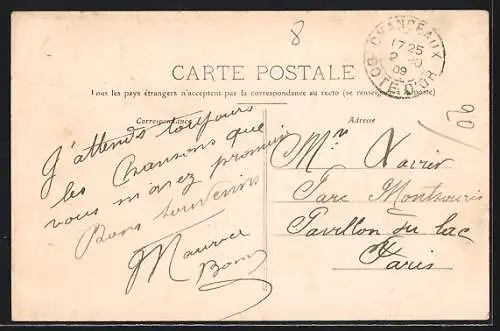 8
CHANCEAUX
17 25
2 10
09
COTE D'OR
CARTE POSTALE
Tous les pays étrangers n'acceptent pas la correspondance au recto (se renseigner à la poste)
Correspondance
J'attends toujours
les Chansons que
vous m'avez promises
Bons souvenirs
Maurice
Adresse
Mr Xavier
Parc Montsouris
Pavillon du lac
Paris